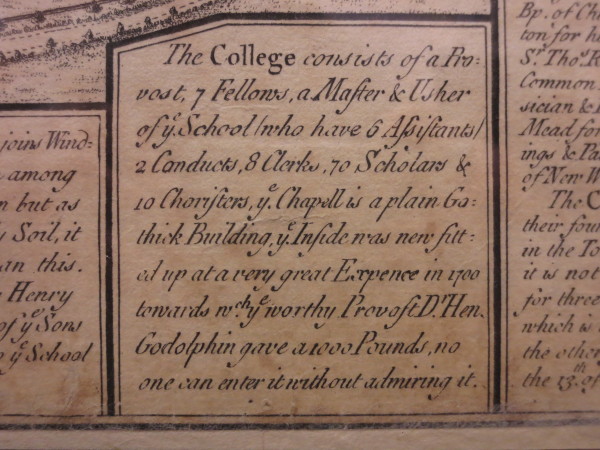 joins Wind=
among
n but as
Soil, it
an this.
Henry
of yͤ Sons
o yͤ School
The College consists of a Pro=
vost, 7 Fellows, a Maſter & Usher
of yͤ School (who have 6 Aſsiſtants)
2 Conducts, 8 Clerks, 70 Scholars &
10 Choriſters, yͤ Chapell is a plain Go=
thick Building, yͤ Inside was new fitt=
ed up at a very great Expence in 1700
towards wᶜʰ yͤ worthy Provoſt Dʳ Hen.
Godolphin gave a 1000 Pounds, no
one can enter it without admiring it.
Bp. of Ch
ton for h
Sʳ Thoˢ R
Common
sician &
Mead for
ings & Pa
of New W
The C
their four
in the To
it is not
for three
which is
the other
the 13ᵗʰ of